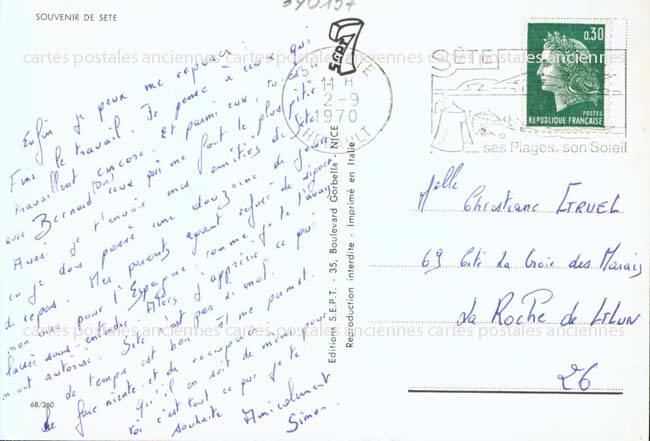 390157
SOUVENIR DE SETE
7
SEPT
34 SETE
11 H
2-9
1970
HERAULT
SÈTE
ses Plages, son Soleil
0,30
POSTES
REPUBLIQUE FRANÇAISE
cartes postales anciennes cartes postales anciennes cartes postales anciennes
Enfin je peux me reposer
Fini le travail. Je pense à ceux qui
travaillent encore. Et parmi eux, tu es
avec Bernard (Del) ceux qui me font le plus pitié
Aussi je t'envoie mes amitiés de Sète
où je dois passer une douzaine de jours
de repos. Mes parents ayant refusé de signer
mon pour l'Espagne comme je te l'avais
laissé sous-entendre. Alors j'apprécie ce qui
m'ont autorisé. Sète n'est pas si mal.
Le temps est bon et me permet
le farniente et de récupérer
qu'il en soit de même pour
toi c'est tout ce que je te
souhaite Amicalement
Simon
68/360
Editions S.E.P.T. - 35, Boulevard Gorbella - NICE
Reproduction interdite - Imprimé en Italie
Melle Christiane
69 Cité La Croix des Marais
La Roche de
26
cartes postales anciennes cartes postales anciennes cartes postales anciennes